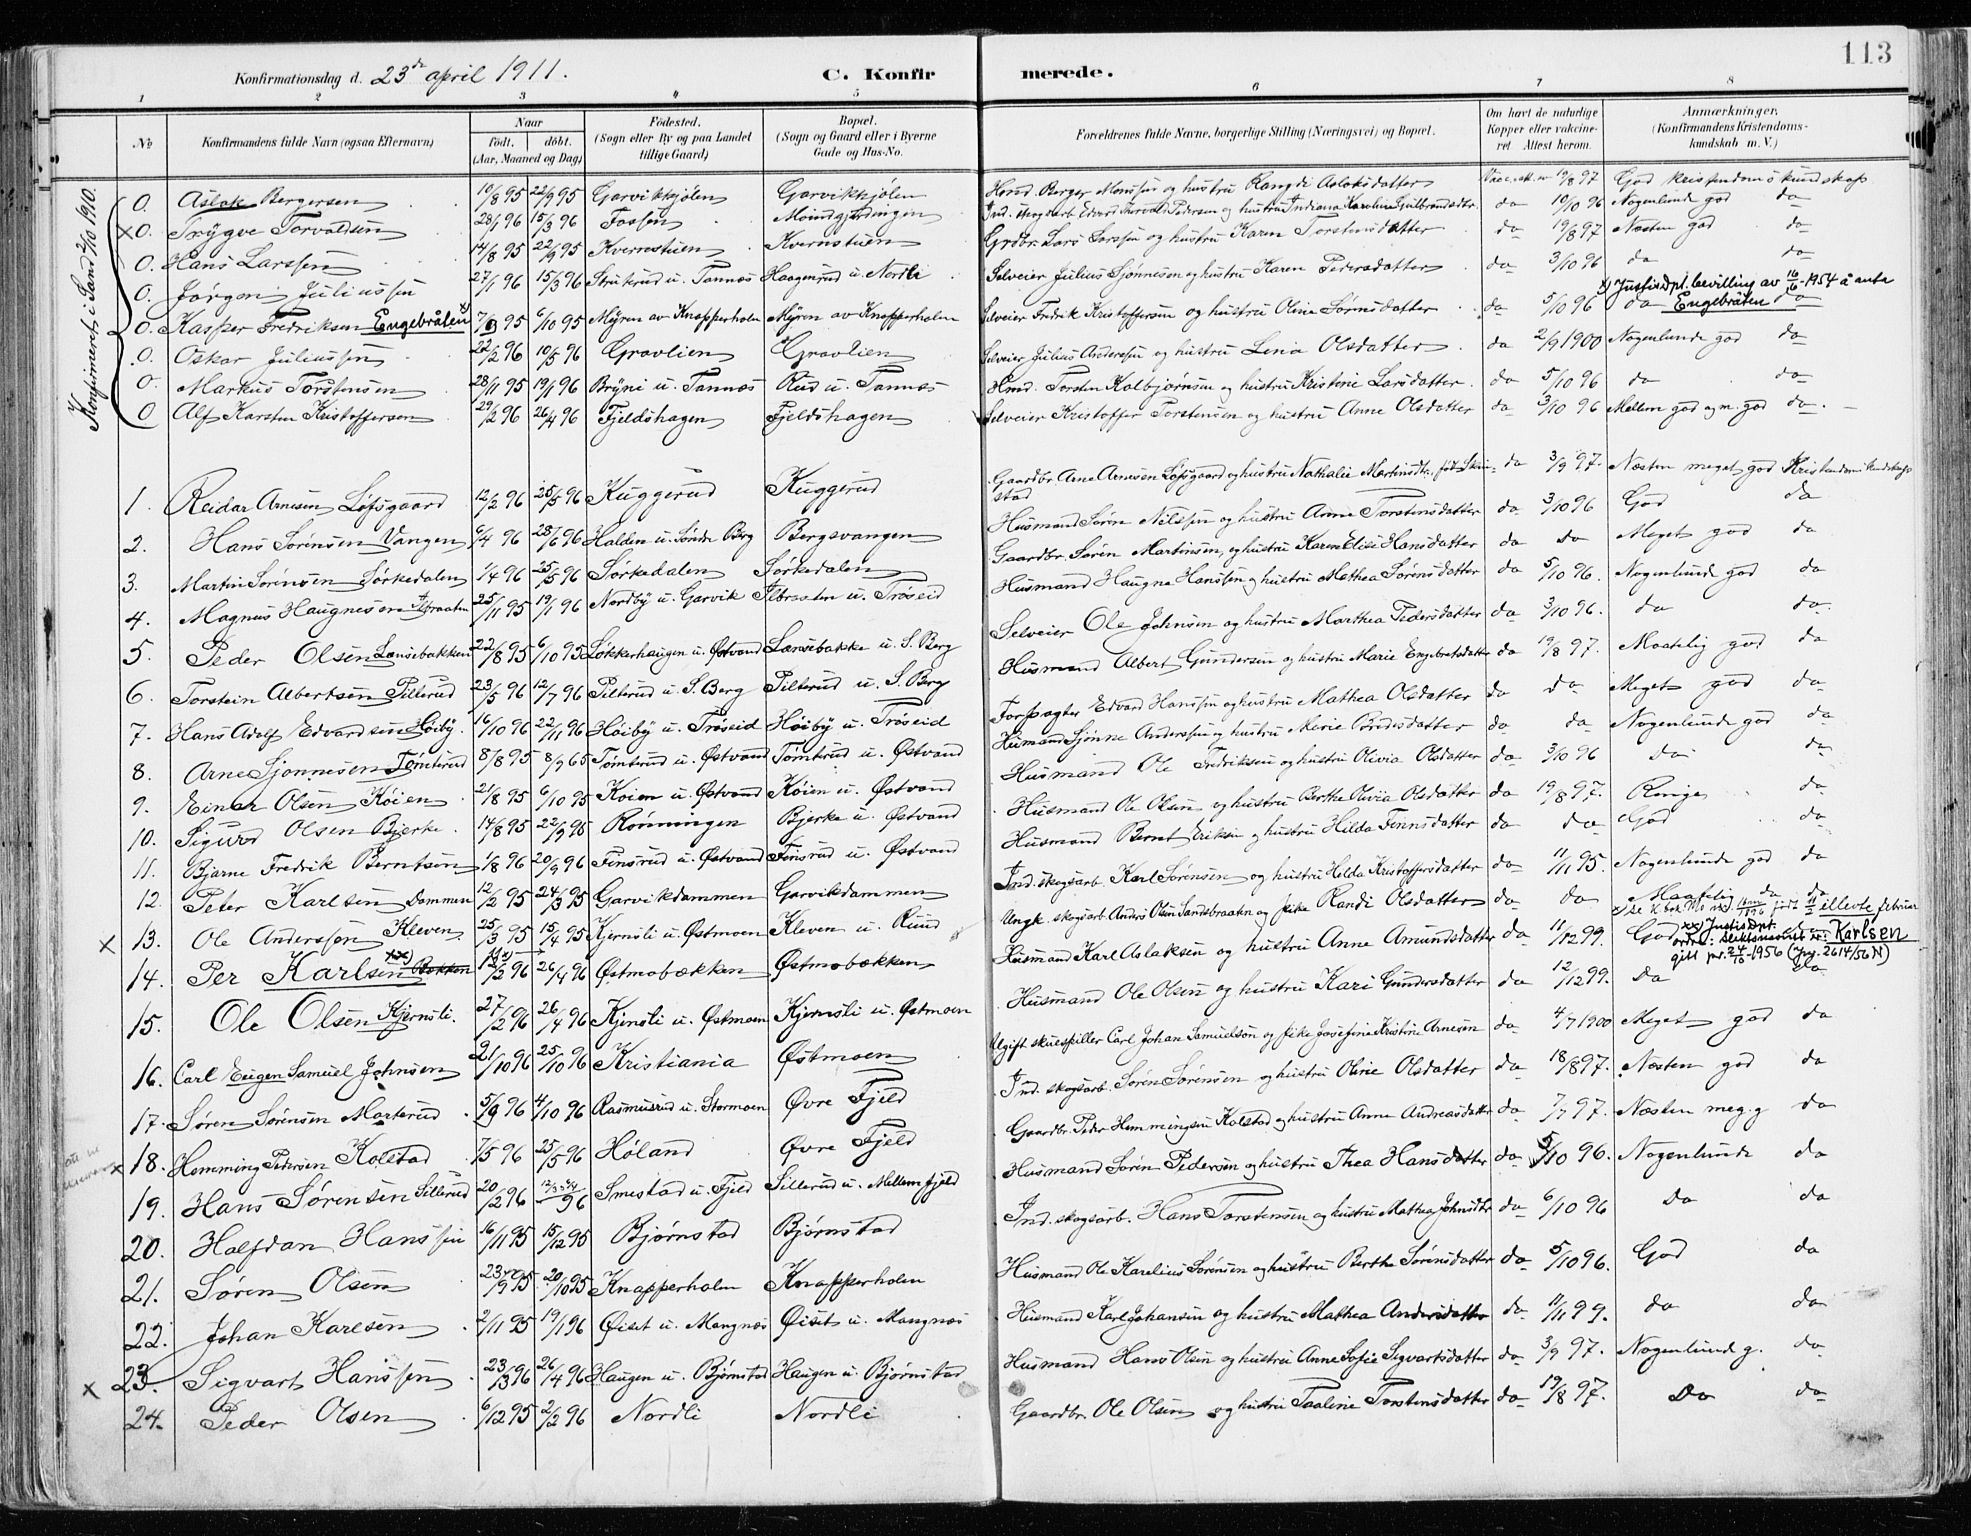 113
Konfirmationsdag d. 23de april 1911. C. Konfirmerede.
1 2 3 4 5 6 7 8
No Konfirmandens fulde Navn (ogsaa Efternavn) Naar født. døbt. (Aar, Maaned og Dag) Födested. (Sogn eller By og paa Landet tillige Gaard) Bopæl. (Sogn og Gaard eller i Byerne Gade og Hus-No. Forældrenes fulde Navne, borgerlige Stilling (Næringsvei) og Bopæl. Om havt de naturlige Kopper eller vakcineret. Attest herom. Anmærkninger. (Konfirmandens Kristendomskundskab m. V.)
Konfirmeret i Sand 2/10 1910.
0. Aslak Bergersen 10/8 95 22/9 95 Garvikkjølen Garvikkjølen Hmd. Berger Monssen og hustru Rangdi Aslaksdatter Vacc. att. av 19/8 97 God kristendomskundskap
x0. Trygve Torvaldsen 28/1 96 15/3 96 Fossen Ind. skogsarb. Edvard Thorvald Pedersen og hustru Indiana Karoline Gulbrandsdtr. da 10/10 96 Nogenlunde god da
0. Hans Larssen 14/8 95 22/9 95 Kvernstuen Kvernstuen Grdbr. Lars Larssen og hustru Karen Torstensdatter da 19/8 97 Næsten god da
0. Jørgen Juliussen 27/1 96 15/3 96 Struterud u. Tannæs Haagenrud u. Nordli Selveier Julius Sjønnesen og hustru Karen Pedersdatter da 3/10 96 da da
x) Justisdpt. bevilling av 16/6 1954 å anta Engebråten
0. Kasper Fredriksen Engebråten x) 7/8 95 6/10 95 Myren av Knapperholm Myren av Knapperholm Selveier Fredrik Kristoffersen og hustru Oline Sørensdatter da 5/10 96 da da
0. Oskar Juliussen 22/2 96 10/5 96 Gravlien Gravlien Selveier Julius Anderssen og hustru Lena Olsdatter da 2/9 1900 Nogenlunde god da
0. Markus Torstensen 28/11 95 19/1 96 Bryni u. Tannæs Rud u. Tannæs Hmd. Torsten Kolbjørnsen og hustru Kristine Larsdatter da 5/10 96 da da
0 Alf Karsten Kristoffersen 29/2 96 26/4 96 Fjeldshagen Fjeldshagen Selveier Kristoffer Torstensen og hustru Anne Olsdatter da 3/10 96 Mellem god og m. god da.
1. Reidar Arnesen Løfsgaard 12/2 96 25/5 96 Kuggerud Kuggerud Gaardbr. Arne Arnesen Løfsgaard og hustru Nathalie Martinsdtr. født Skinstad da 3/9 97. Næsten meget god Kristendomskundskap
2. Hans Sørensen Vangen 6/4 96 28/6 96 Halden u. Søndre Berg Bergsvangen Husmand Søren Nilssen og hustru Anne Torstensdatter da 3/10 96 God da
3. Martin Sørensen Sørkedalen 1/4 96 25/5 96 Sørkedalen Sørkedalen Gaardbr. Søren Martinsen og hustru Karen Elise Hansdatter da da Meget god da
4. Magnus Haugnesen 25/11 95 19/1 96 Nordby u. Garvik u. Trøseid Husmand Haugne Hanssen og hustru Mathea Sørensdatter da 5/10 96. Nogenlunde god da
5. Peder Olsen Lænsebakken 22/8 95 6/10 95 Løkkerhaugen u. Østvand Lænsebakke u. S. Berg Selveier Ole Johnsen og hustru Marthea Pedersdatter da 3/10 96. da da
6. Torstein Albertsen Pilterud 23/5 96 12/7 96 Pilterud u. S. Berg Pilterud u. S. Berg Husmand Albert Gundersen og hustru Marie Engebretsdatter da 19/8 97. Maatelig god da
7. Hans Adolf Edvardsen Høiby. 16/10 96 22/11 96 Høiby u. Trøseid Høiby u. Trøseid Forpagter Edvard Hanssen og hustru Mathea Olsdatter da da Meget god da
8. Arne Sjønnesen Tømterud 8/8 95 8/9 65 Tømterud u. Østvand Tømterud u. Østvand Husmand Sjønne Anderssen og hustru Marie da da Nogenlunde god da
9. Einar Olsen Køien 21/8 95 6/10 95 Køien u. Østvand Køien u. Østvand Husmand Ole Fredriksen og hustru Olivia Olsdatter da 3/10 96 da da
10. Sigurd Olsen Bjerke 14/8 95 22/9 95 Rønningen Bjerke u. Østvand Husmand Ole Olsen og hustru Berthe Olivia Olsdatter da 19/8 97. Ringe da
11. Bjarne Fredrik Berntsen 1/8 96 20/9 96 Finsrud u. Østvand Finsrud u. Østvand Husmand Bernt Eriksen og hustru Hilda Finnsdatter da da God da
12. Peter Karlsen Dammen 12/2 95 24/3 95 Garvikdammen Garvikdammen Ind. skogsarb. Karl Sørensen og hustru Helda Kristoffersdatter da 11/11 95. Nogenlunde god da
x 13. Ole Anderssen Kleven 25/3 95 15/4 95 Kjernsli u. Østmoen Kleven u. Ruud Ungk. skogsarb. Anders Olsen Sandsbraaten og pike Randi Olsdatter da da Maatelig da da
x) se K.bok født 11/2 ellevte februar
14. Per Karlsen xx) Bekken 11/2 96 26/4 96 Østmobækken Østmobækken Husmand Karl Aslaksen og hustru Anne Amundsdatter da 11/12 99. God xx) Justisdpt. ordre: slektsnavnet er: Karlsen gitt pr. 24/10-1956 (Jnr. 2614/56 N)
15. Ole Olsen Kjernsli. 27/2 96 26/4 96 Kjernsli u. Østmoen Kjernsli u. Østmoen Husmand Ole Olsen og hustru Kari Gundersdatter da 12/12 99. da da
16. Carl Eugen Samuel Johnsen 21/10 96 25/10 96 Kristiania Østmoen Ugift skuespiller Carl Johan Samuelson og pike Josefine Kristine Arnesen da 4/7 1900 Meget god da
17. Søren Sørensen Marterud 5/9 96 4/10 96 Rasmusrud u. Stormoen Øvre Fjeld Ind. skogsarb. Søren Sørensen og hustru Oline Olsdatter da 18/8 97. Næsten god da
x 18. Hemming Pedersen Kolstad 7/5 96 25/5 96 Høland Øvre Fjeld Gaardbr. Peder Hemmingsen Kolstad og hustru Anne Andreasdatter da 7/7 97. Næsten meg. g da
19. Hans Sørensen Sillerud 20/2 96 96 Smestad u. Fjeld Sillerud u. Mellem fjeld Husmand Søren Pedersen og hustru Thea Hansdatter da 5/10 96. Nogenlunde da
20. Halfdan Hanssen 16/11 95 15/12 95 Bjørnstad Bjørnstad Ind. skogsarb. Hans Torstensen og hustru Mathea Johnsdtr. da 6/10 96 da da
21. Søren Olsen 23/9 95 20/10 95 Knapperholm Knapperholm Husmand Ole Karelius Sørensen og hustru Berthe Sørensdatter da 5/10 96. God da
22. Johan Karlsen 2/11 95 19/1 96 Øiset u. Mangnæs Øiset u. Mangnæs Husmand Karl Johansen og hustru Mathea Andersdatter da 99. da da
x 23. Sigvart Hanssen 23/3 96 26/4 96 Haugen u. Bjørnstad Haugen u. Bjørnstad Husmand Hans Olsen og hustru Anne Sofie Sigvartsdatter da 3/9 97. Nogenlund g. da
24. Peder Olsen 6/12 95 2/2 96 Nordli Nordli Gaardbr. Ole Olsen og hustru Paaline Torstensdatter da 19/8 97. Do da